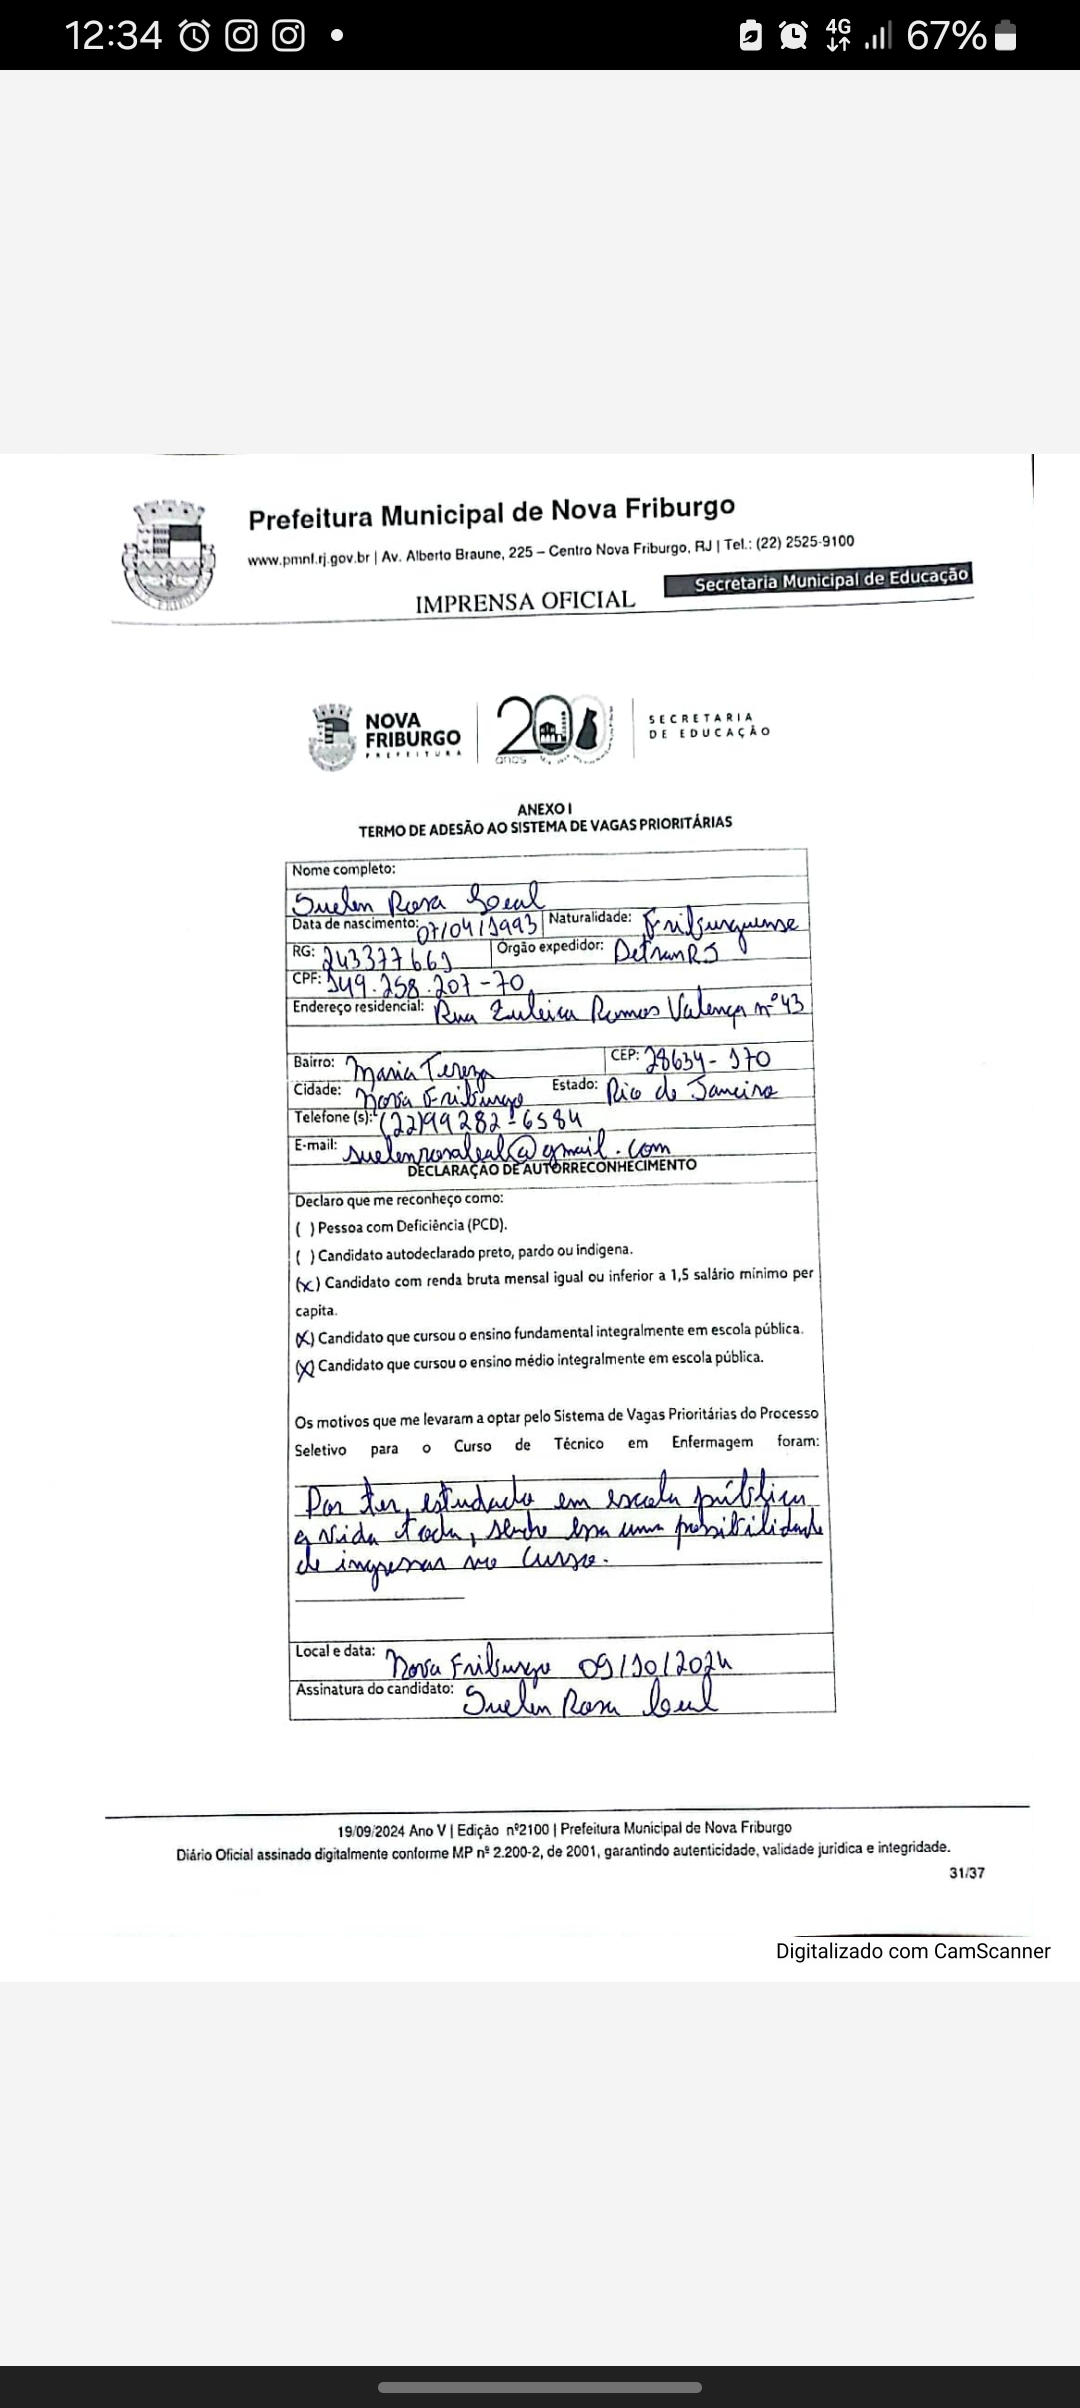 12:34
4G
67%
Prefeitura Municipal de Nova Friburgo
www.pmnf.rj.gov.br | Av. Alberto Braune, 225 – Centro Nova Friburgo, RJ | Tel.: (22) 2525-9100
Secretaria Municipal de Educação
IMPRENSA OFICIAL
NOVA
FRIBURGO
PREFEITURA
200
anos
SECRETARIA
DE EDUCAÇÃO
ANEXO I
TERMO DE ADESÃO AO SISTEMA DE VAGAS PRIORITÁRIAS
Nome completo:
Suelen Rosa Leal
Data de nascimento: 07/04/1993 Naturalidade: Friburguense
RG: 243377661 Órgão expedidor: Detran RJ
CPF: 149.258.207-70
Endereço residencial: Rua Zuleica Ramos Valença nº 43
Bairro: Maria Tereza CEP: 28634-170
Cidade: Nova Friburgo Estado: Rio de Janeiro
Telefone (s): (22)99282-6584
E-mail: suelenrosaleal@gmail.com
DECLARAÇÃO DE AUTORRECONHECIMENTO
Declaro que me reconheço como:
( ) Pessoa com Deficiência (PCD).
( ) Candidato autodeclarado preto, pardo ou indígena.
(x) Candidato com renda bruta mensal igual ou inferior a 1,5 salário mínimo per
capita.
(X) Candidato que cursou o ensino fundamental integralmente em escola pública.
(X) Candidato que cursou o ensino médio integralmente em escola pública.
Os motivos que me levaram a optar pelo Sistema de Vagas Prioritárias do Processo
Seletivo para o Curso de Técnico em Enfermagem foram:
Por ter, estudado em escola pública
a vida toda, sendo essa uma possibilidade
de ingressar no curso.
Local e data: Nova Friburgo 09/10/2024
Assinatura do candidato: Suelen Rosa Leal
19/09/2024 Ano V | Edição nº2100 | Prefeitura Municipal de Nova Friburgo
Diário Oficial assinado digitalmente conforme MP nº 2.200-2, de 2001, garantindo autenticidade, validade jurídica e integridade.
31/37
Digitalizado com CamScanner